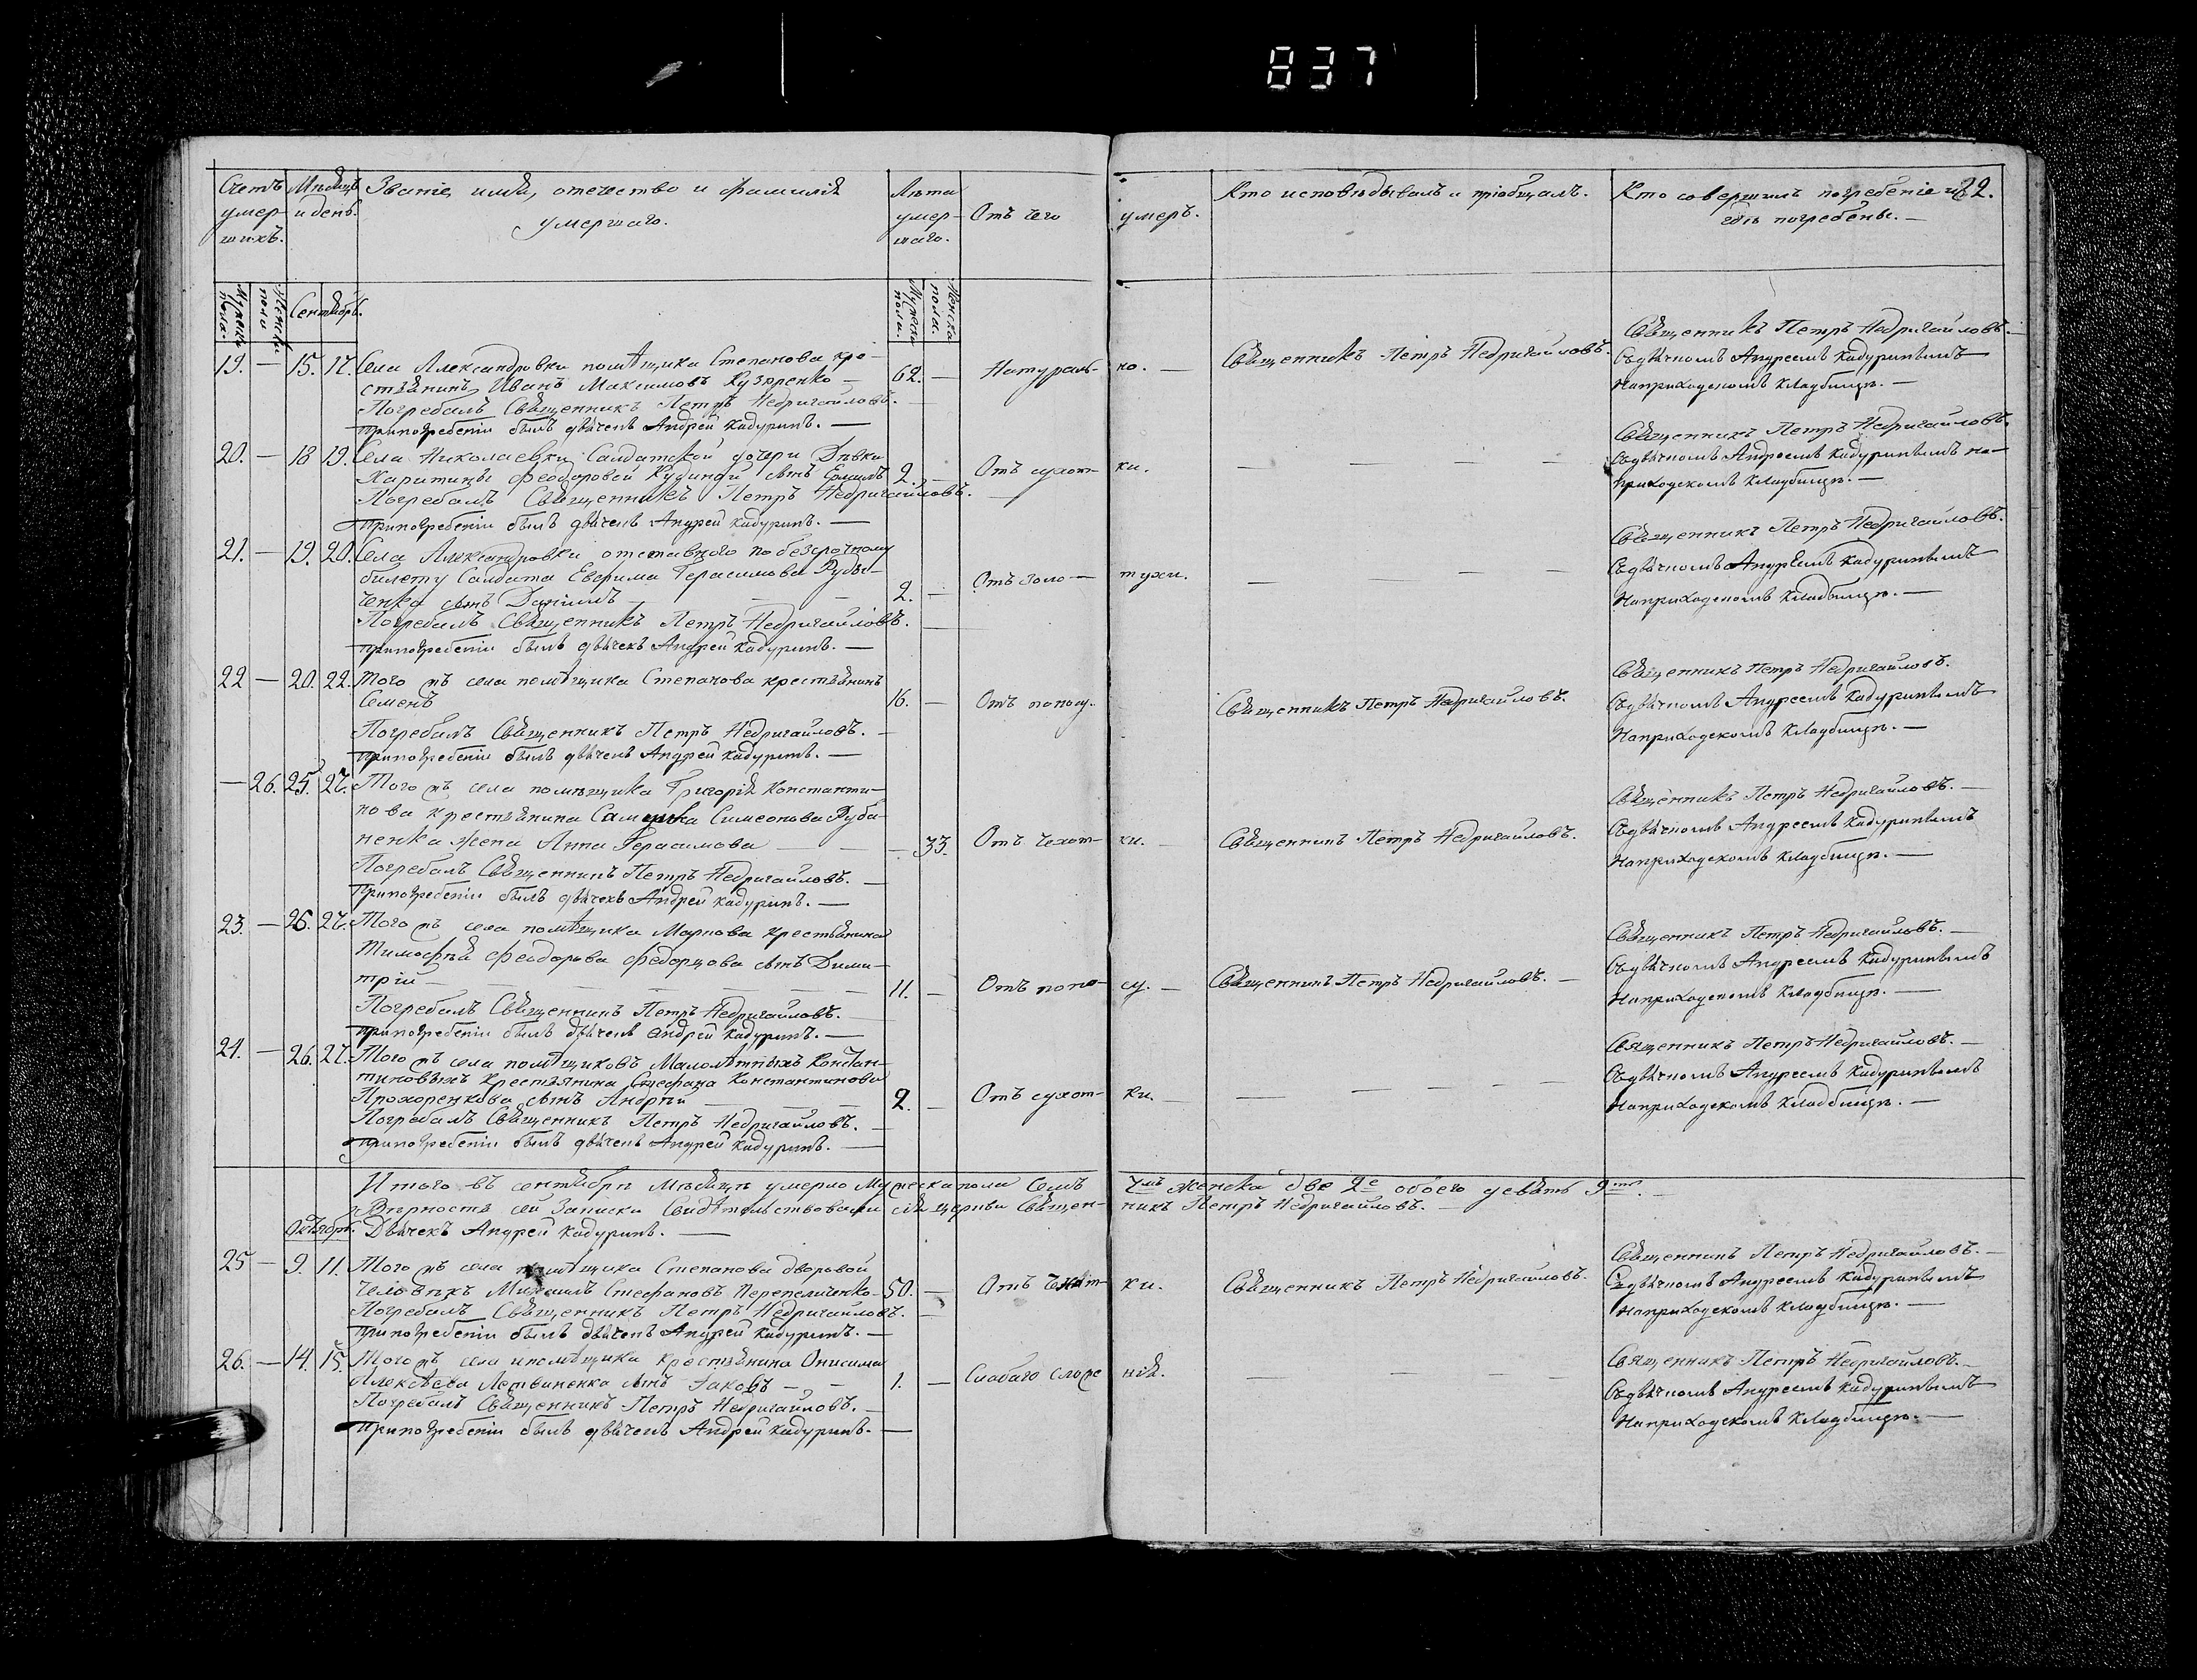 837
Счетъ умер-шихъ.
Мѣсяцъ и день.
Званіе, имя, отечество и фамилія умершаго.
Лѣта умер-шаго.
Отъ чего умеръ.
Кто исповѣдывалъ и пріобщалъ.
Кто совершилъ погребеніе и гдѣ погребены. —
22.
Мужеска пола.
Женска пола
Сентябрь.
Мужеска пола.
Женска пола.
19. — 15. 17. Села Александровки помѣщика Степанова кре-
стьянинъ Иванъ Максимовъ Кузюренко — 62. — Натураль- но. — Священникъ Петръ Недригайловъ.
Погребалъ Священникъ Петръ Недригайловъ. —
При погребеніи былъ дьячекъ Андрей Кадуринъ. —
Священникъ Петръ Недригайловъ. —
Съ дьячкомъ Андреемъ Кадуринымъ
На приходскомъ кладбищѣ. —
20. — 18 19. Села Николаевки Салдатской дочери Дѣвки
Харитины Феодоровой сынъ Ермилъ 2. — Отъ сухот- ки. — — — —
Погребалъ Священникъ Петръ Недригайловъ. —
При погребеніи былъ дьячекъ Андрей Кадуринъ. —
Священникъ Петръ Недригайловъ.
Съ дьячкомъ Андреемъ Кадуринымъ на
приходскомъ кладбищѣ. —
21. — 19. 20. Села Александровки отставного по безсрочному
билету Салдата Евфима Герасимова Рубa-
ненка сынъ Даніилъ — 2. — Отъ золо- тухи. — — —
Погребалъ Священникъ Петръ Недригайловъ. —
При погребеніи былъ дьячекъ Андрей Кадуринъ. —
Священникъ Петръ Недригайловъ.
Съ дьячкомъ Андреемъ Кадуринымъ
На приходскомъ кладбищѣ. —
22 — 20. 22. Того жъ села помѣщика Степанова крестьянинъ
Семенъ 16. — Отъ поносу. Священникъ Петръ Недригайловъ.
Погребалъ Священникъ Петръ Недригайловъ. —
При погребеніи былъ дьячекъ Андрей Кадуринъ. —
Священникъ Петръ Недригайловъ.
Съ дьячкомъ Андреемъ Кадуринымъ
На приходскомъ кладбищѣ. —
— 26. 25. 27. Того жъ села помѣщика Григорія Константи-
нова крестьянина Симеонова Руба-
ненка жена Анна Герасимова — — 33. Отъ чехот- ки. — Священникъ Петръ Недригайловъ.
Погребалъ Священникъ Петръ Недригайловъ. —
При погребеніи былъ дьячекъ Андрей Кадуринъ. —
Священникъ Петръ Недригайловъ. —
Съ дьячкомъ Андреемъ Кадуринымъ
На приходскомъ кладбищѣ. —
23. — 26. 27. Того жъ села помѣщика Маркова крестьянина
Тимофѣй Феодорова Федорцова сынъ Дими-
трій — — — 11. — Отъ поно- су. — Священникъ Петръ Недригайловъ. —
Погребалъ Священникъ Петръ Недригайловъ. —
При погребеніи былъ дьячекъ Андрей Кадуринъ. —
Священникъ Петръ Недригайловъ. —
Съ дьячкомъ Андреемъ Кадуринымъ
На приходскомъ кладбищѣ. —
24. — 26. 27. Того жъ села помѣщиковъ Малолѣтныхъ Констан-
тиновыхъ крестьянина Стефана Константинова
Прохоренкова сынъ Андрѣй — — 2. — Отъ сухот- ки. — — — —
Погребалъ Священникъ Петръ Недригайловъ. —
При погребеніи былъ дьячекъ Андрей Кадуринъ. —
Священникъ Петръ Недригайловъ. —
Съ дьячкомъ Андреемъ Кадуринымъ
На приходскомъ кладбищѣ. —
Итого въ сентябрѣ мѣсяцѣ умерло мужеска пола семъ 7мъ женска две 2е обоего девять 9ть. —
Вѣрность сей Записки Свидѣтельствовали сея церкви Священ- никъ Петръ Недригайловъ. —
Дьячекъ Андрей Кадуринъ. —
Октябрь.
25 — 9. 11. Того жъ села помѣщика Степанова дворовой
человѣкъ Михаилъ Стефановъ Перепеличенко 50. — Отъ чехот- ки. Священникъ Петръ Недригайловъ.
Погребалъ Священникъ Петръ Недригайловъ. —
При погребеніи былъ дьячекъ Андрей Кадуринъ. —
Священникъ Петръ Недригайловъ. —
Съ дьячкомъ Андреемъ Кадуринымъ
На приходскомъ кладбищѣ. —
26. — 14. 15. Того жъ села и помѣщика крестьянина Онисима
Алексѣева Летвиненка сынъ Іаковъ — — 1. — Слабаго сложе нія. — — — —
Погребалъ Священникъ Петръ Недригайловъ. —
При погребеніи былъ дьячекъ Андрей Кадуринъ. —
Священникъ Петръ Недригайловъ. —
Съ дьячкомъ Андреемъ Кадуринымъ
На приходскомъ кладбищѣ. —